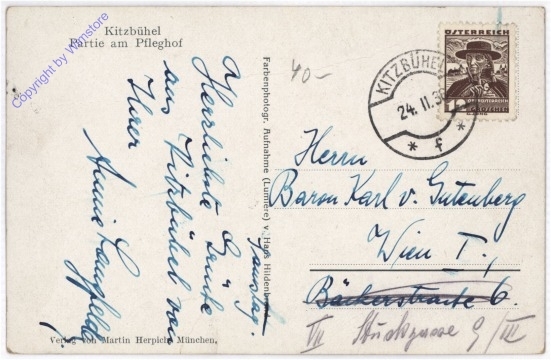 Kitzbühel
Partie am Pfleghof
Copyright by Wamstore
40-
ÖSTERREICH
12
KITZBÜHEL
24. II. 36
* f *
Herrlichste Grüße
aus Kitzbühel von
Ihrer
Farbenphotogr. Aufnahme (Lumiere) v. Hans Hildenbrand
Herrn
Baron Karl v. Gutenberg
Wien I.,
Bäckerstraße 6.
VII Stuckgasse 9/III
Verlag von Martin Herpich, München,